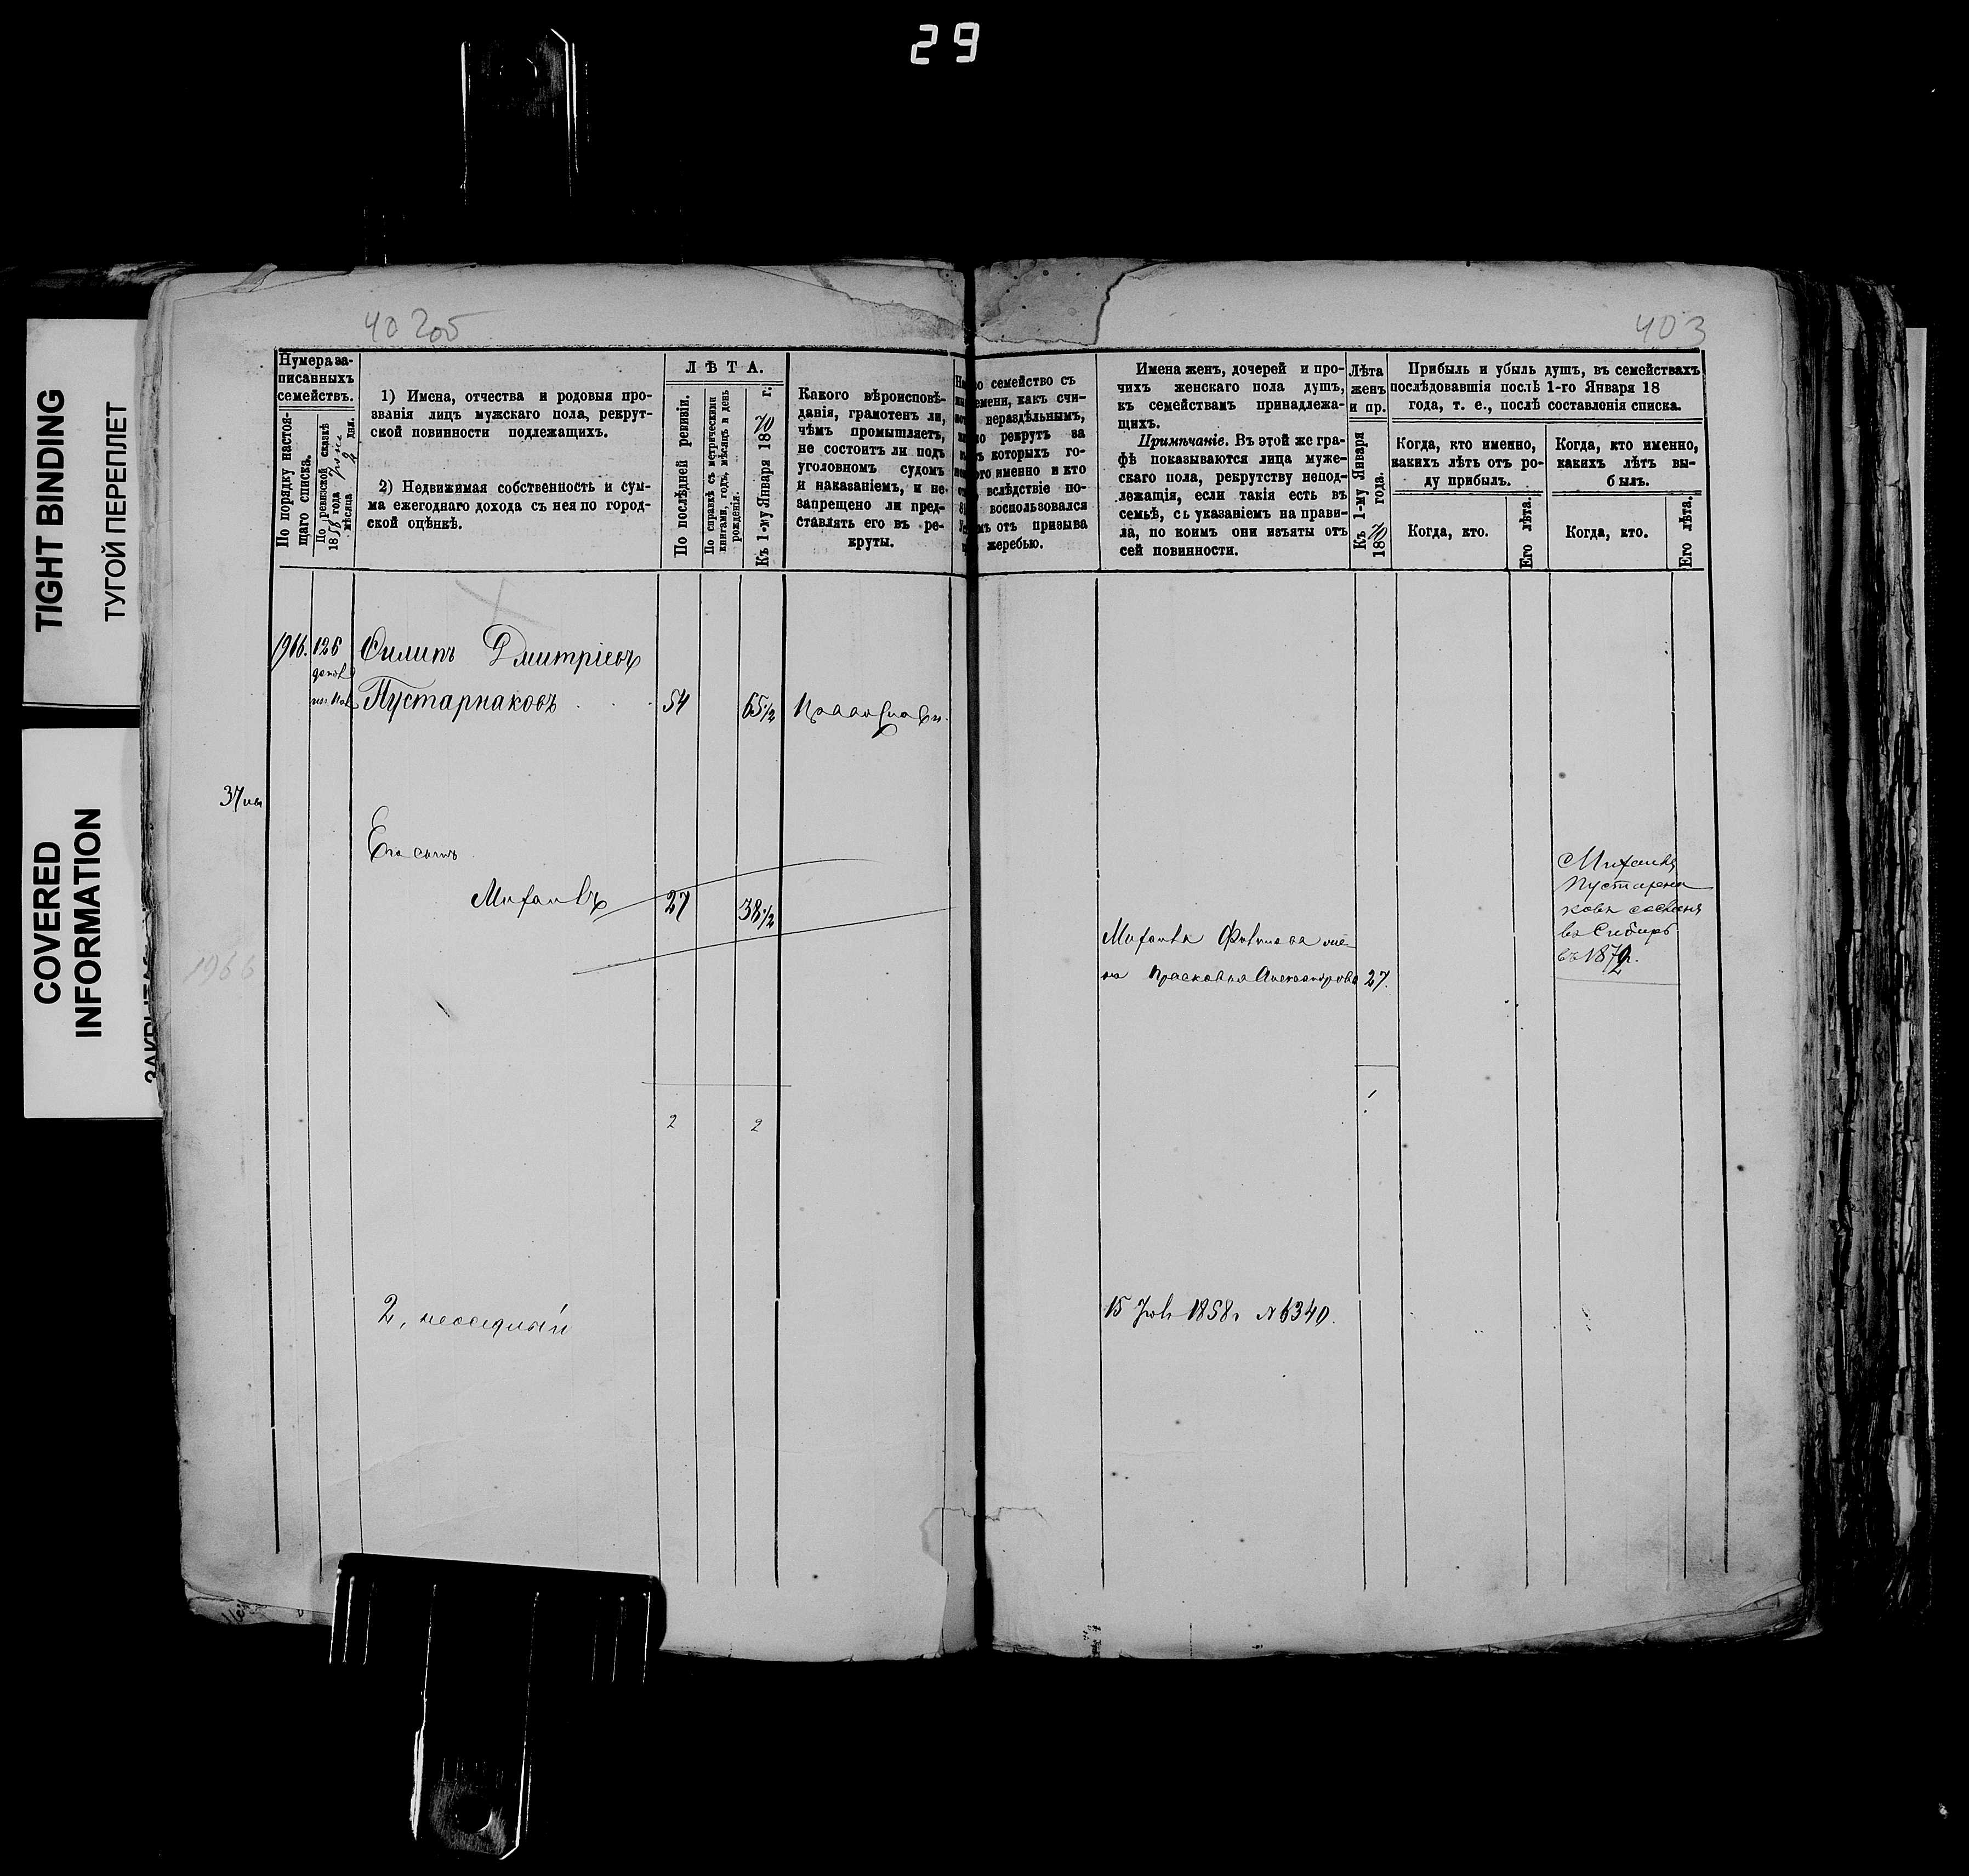 29
TIGHT BINDING
ТУГОЙ ПЕРЕПЛЕТ
COVERED
INFORMATION
403
Нумера за-
писанныхъ
семействъ.
По порядку настоя-
щаго списка.
По ревизской сказкѣ
1858 года
мѣсяца 2 дня.
1) Имена, отчества и родовыя про-
званія лицъ мужскаго пола, рекрут-
ской повинности подлежащихъ.
2) Недвижимая собственность и сум-
ма ежегоднаго дохода съ нея по город-
ской оцѣнкѣ.
ЛѢТА.
По послѣдней ревизіи.
По справкѣ съ метрическими
книгами, годъ, мѣсяцъ и день
рожденія.
Къ 1-му Января 1870 г.
Какого вѣроисповѣ-
данія, грамотенъ ли,
чѣмъ промышляетъ,
не состоитъ ли подъ
уголовномъ судомъ
и наказаніемъ, и не
запрещено ли пред-
ставлять его въ ре-
круты.
семейство съ
какъ счи-
нераздѣльнымъ,
рекрутъ за
которыхъ го-
именно и кто
вслѣдствіе по-
воспользовался
отъ призыва
жеребью.
Имена женъ, дочерей и про-
чихъ женскаго пола душъ,
къ семействамъ принадлежа-
щихъ.
Примѣчаніе. Въ этой же гра-
фѣ показываются лица муже-
скаго пола, рекрутству непод-
лежащія, если такія есть въ
семьѣ, съ указаніемъ на прави-
ла, по коимъ они изъяты отъ
сей повинности.
Лѣта
женъ
и пр.
Къ 1-му Января
1870 года.
Прибыль и убыль душъ, въ семействахъ
послѣдовавшія послѣ 1-го Января 18
года, т. е., послѣ составленія списка.
Когда, кто именно,
какихъ лѣтъ отъ ро-
ду прибылъ.
Когда, кто именно,
какихъ лѣтъ вы-
былъ.
Когда, кто.
Его лѣта.
Когда, кто.
Его лѣта.
1966. 126 Филипъ Дмитріевъ
Пустарнаковъ 54 65½ Православн.
Его сынъ
Михаилъ 27 38½
1966
Михаила Филипова же-
на Прасковья Александрова 27.
Михаилъ
Пустарна
ковъ сосланъ
въ Сибирь
въ 1872 г.
2 2
1
2,
15 1858 г № 6340.